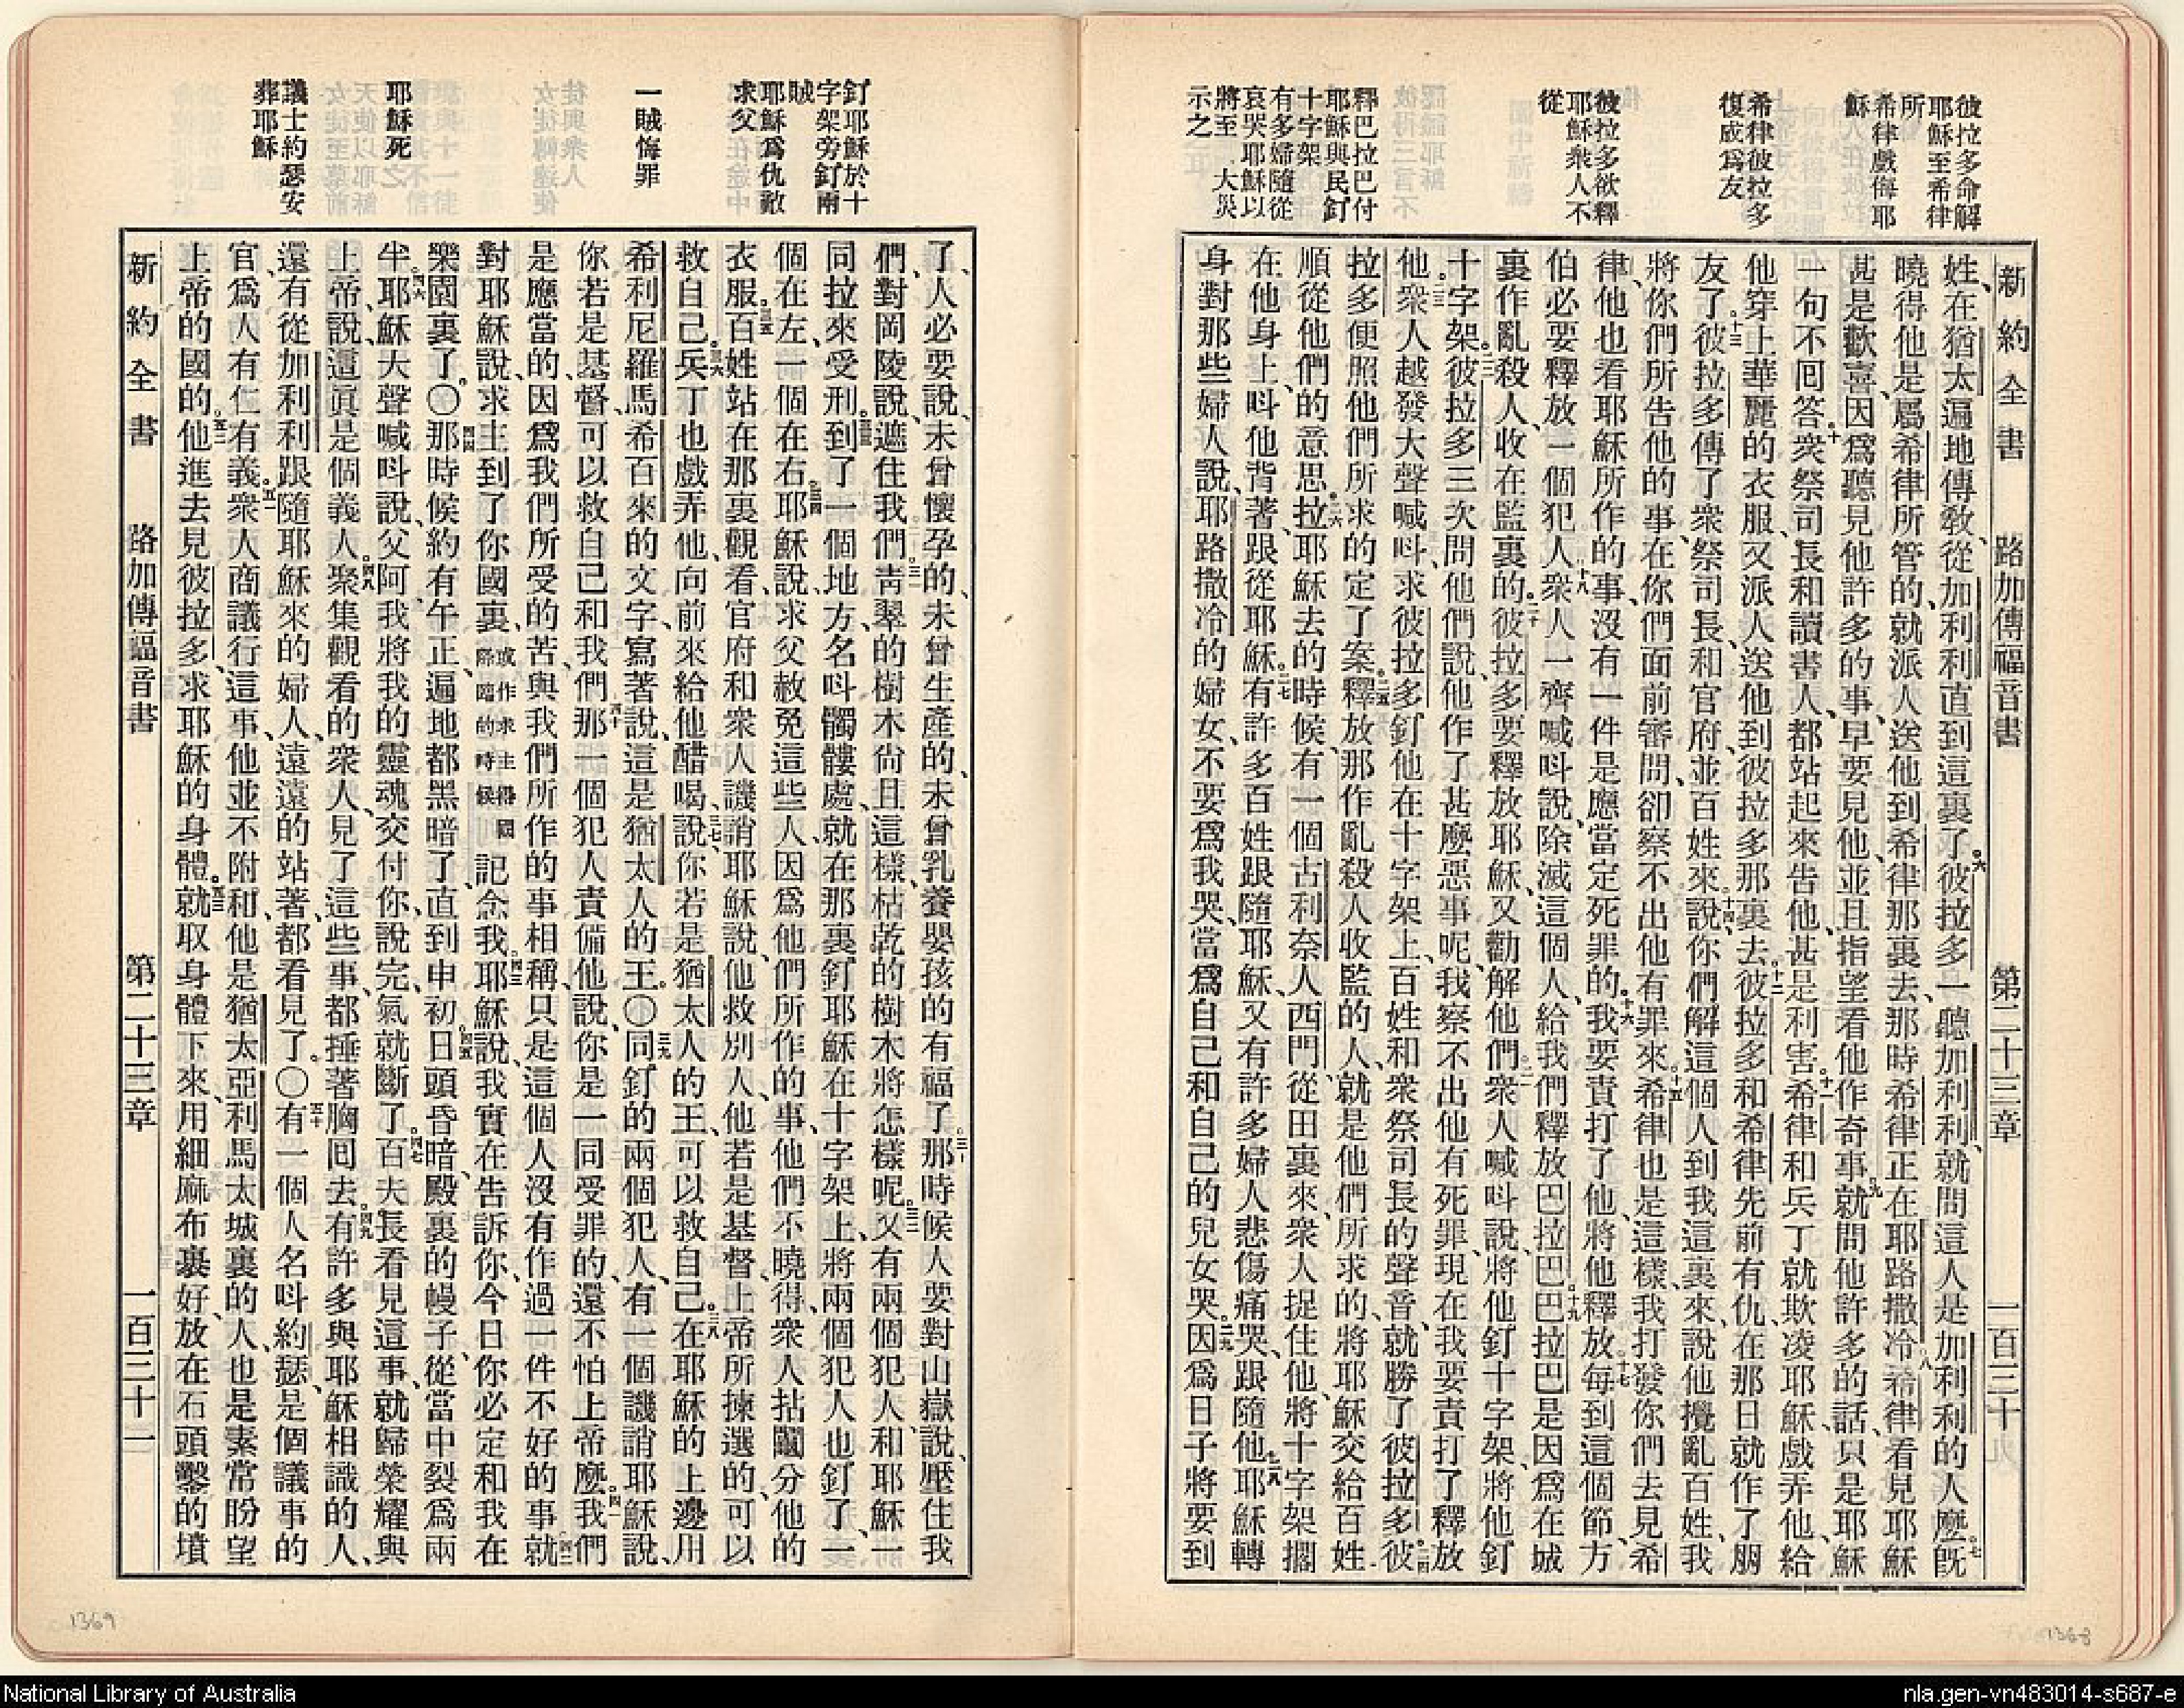 彼拉多命解
耶穌至希律
所
希律戲侮耶
穌
希律彼拉多
復成爲友
彼拉多欲釋
耶穌衆人不
從
釋巴拉巴付
耶穌與民釘
十字架
有多婦隨從
哀哭耶穌以
將至大災
示之
新約全書 路加傳福音書 第二十三章 一百三十
姓、在猶太遍地傳敎、從加利利直到這裏了。六彼拉多一聽加利利、就問這人是加利利的人麼。七旣
曉得他是屬希律所管的、就派人送他到希律那裏去、那時希律正在耶路撒冷。八希律看見耶穌
甚是歡喜、因爲聽見他許多的事、早要見他、並且指望看他作奇事。九就問他許多的話、只是耶穌
一句不囘答。十衆祭司長和讀書人、都站起來告他、甚是利害。十一希律和兵丁就欺凌耶穌、戲弄他、給
他穿上華麗的衣服、又派人送他到彼拉多那裏去。十二彼拉多和希律先前有仇、在那日就作了朋
友了。十三彼拉多傳了衆祭司長、和官府、並百姓來。十四說、你們解這個人到我這裏來、說他攪亂百姓、我
將你們所告他的事、在你們面前審問、卻察不出他有罪來。十五希律也是這樣、我打發你們去見希
律、他也看耶穌所作的事、沒有一件是應當定死罪的。十六我要責打了他、將他釋放。十七每到這個節、方
伯必要釋放一個犯人。十八衆人一齊喊呌說、除滅這個人、給我們釋放巴拉巴。十九巴拉巴是因爲在城
裏作亂殺人、收在監裏的。二十彼拉多要釋放耶穌、又勸解他們。二一衆人喊呌說、將他釘十字架、將他釘
十字架。二二彼拉多三次問他們說、他作了甚麼惡事呢、我察不出他有死罪、現在我要責打了釋放
他。二三衆人越發大聲喊呌、求彼拉多釘他在十字架上、百姓和衆祭司長的聲音、就勝了彼拉多。二四彼
拉多便照他們所求的定了案。二五釋放那作亂殺人收監的人、就是他們所求的、將耶穌交給百姓
順從他們的意思。二六拉耶穌去的時候、有一個古利奈人西門、從田裏來、衆人捉住他、將十字架擱
在他身上、呌他背著、跟從耶穌。二七有許多百姓跟隨耶穌、又有許多婦人悲傷痛哭、跟隨他。二八耶穌轉
身對那些婦人說、耶路撒冷的婦女、不要爲我哭、當爲自己和自己的兒女哭。二九因爲日子將要到
1368
釘耶穌於十
字架旁釘兩
賊
耶穌爲仇敵
求父
一賊悔罪
耶穌死
議士約瑟安
葬耶穌
了、人必要說、未曾懷孕的、未曾生產的、未曾乳養嬰孩的有福了。三十那時候人要對山嶽說、壓住我
們、對岡陵說、遮住我們。三一靑翠的樹木尙且這樣、枯乾的樹木將怎樣呢。三二又有兩個犯人、和耶穌一
同拉來受刑。三三到了一個地方、名呌髑髏處、就在那裏釘耶穌在十字架上、將兩個犯人也釘了、一
個在左、一個在右。三四耶穌說、求父赦免這些人、因爲他們所作的事、他們不曉得、衆人拈鬮分他的
衣服。三五百姓站在那裏觀看、官府和衆人譏誚耶穌說、他救別人、他若是基督、上帝所揀選的、可以
救自己。三六兵丁也戲弄他、向前來給他醋喝。三七說、你若是猶太人的王、可以救自己。三八在耶穌的上邊用
希利尼羅馬希百來的文字、寫著說、這是猶太人的王。〇三九同釘的兩個犯人、有一個譏誚耶穌說、
你若是基督、可以救自己和我們。四十那一個犯人責備他說、你是一同受罪的、還不怕上帝麼。四一我們
是應當的、因爲我們所受的苦、與我們所作的事相稱、只是這個人沒有作過一件不好的事。四二就
對耶穌說、求主到了你國裏、或作求主得國際臨的時候記念我。四三耶穌說、我實在告訴你、今日你必定和我在
樂園裏了。〇四四那時候約有午正、遍地都黑暗了、直到申初。四五日頭昏暗、殿裏的幔子、從當中裂爲兩
半。四六耶穌大聲喊呌說、父阿、我將我的靈魂、交付你、說完、氣就斷了。四七百夫長看見這事、就歸榮耀與
上帝、說、這眞是個義人。四八聚集觀看的衆人、見了這些事、都捶著胸囘去。四九有許多與耶穌相識的人、
還有從加利利跟隨耶穌來的婦人、遠遠的站著、都看見了。〇五十有一個人名呌約瑟、是個議事的
官、爲人有仁有義。五一衆人商議行這事、他並不附和、他是猶太亞利馬太城裏的人、也是素常盼望
上帝的國的。五二他進去見彼拉多、求耶穌的身體。五三就取身體下來、用細麻布裹好、放在石頭鑿的墳
新約全書 路加傳福音書 第二十三章 一百三十一
1369
National Library of Australia
nla.gen-vn483014-s687-e